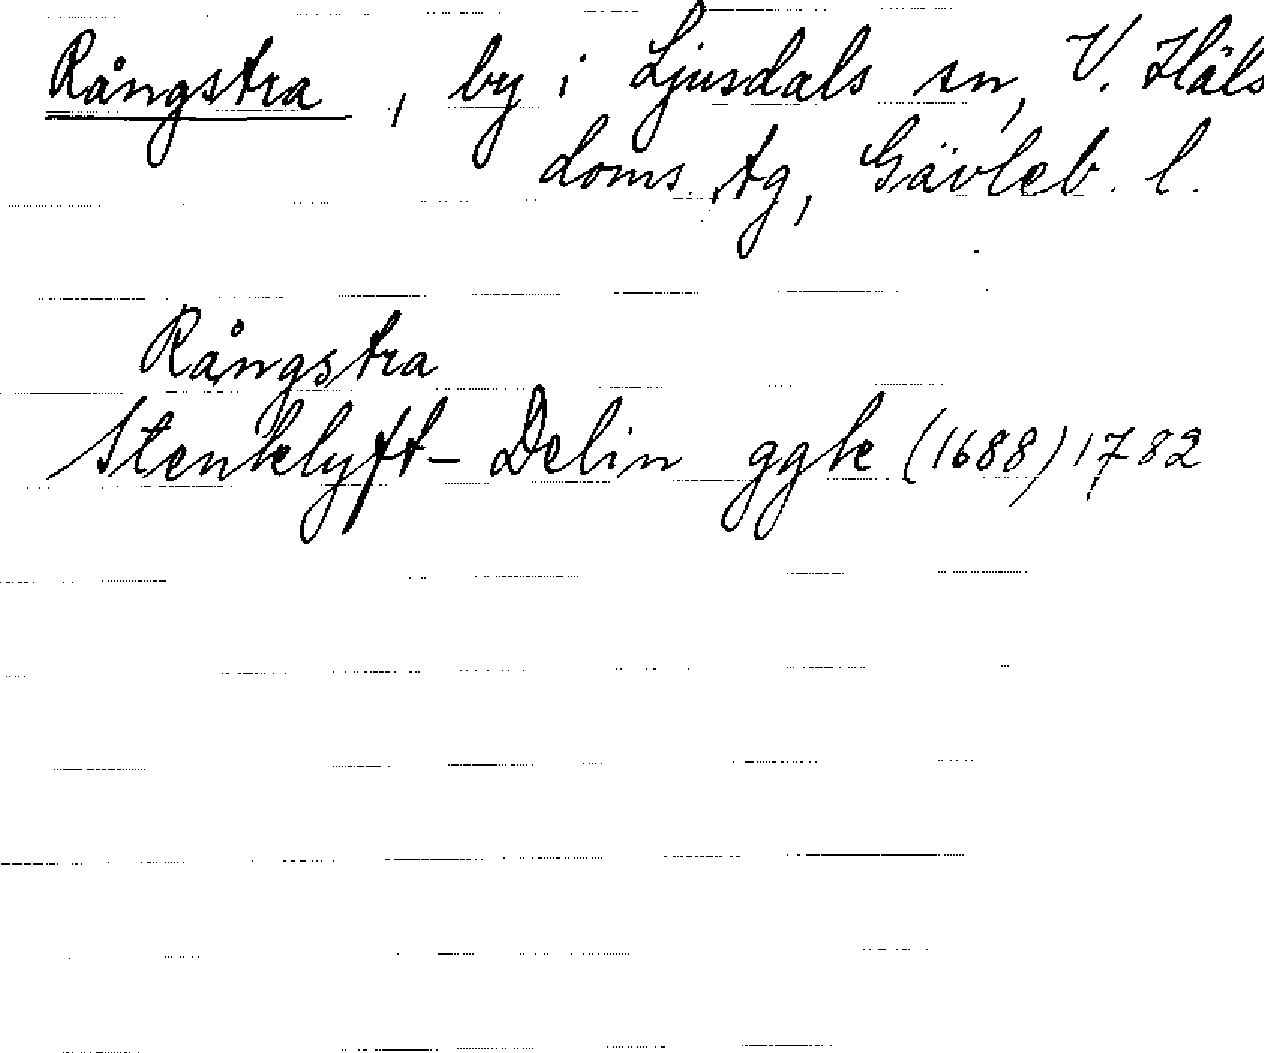 Rångstra, by i Ljusdals sn, V. Häls
doms. tg, Gävleb. l.
Rångstra
Stenklyft- Delin ggk (1688) 1782